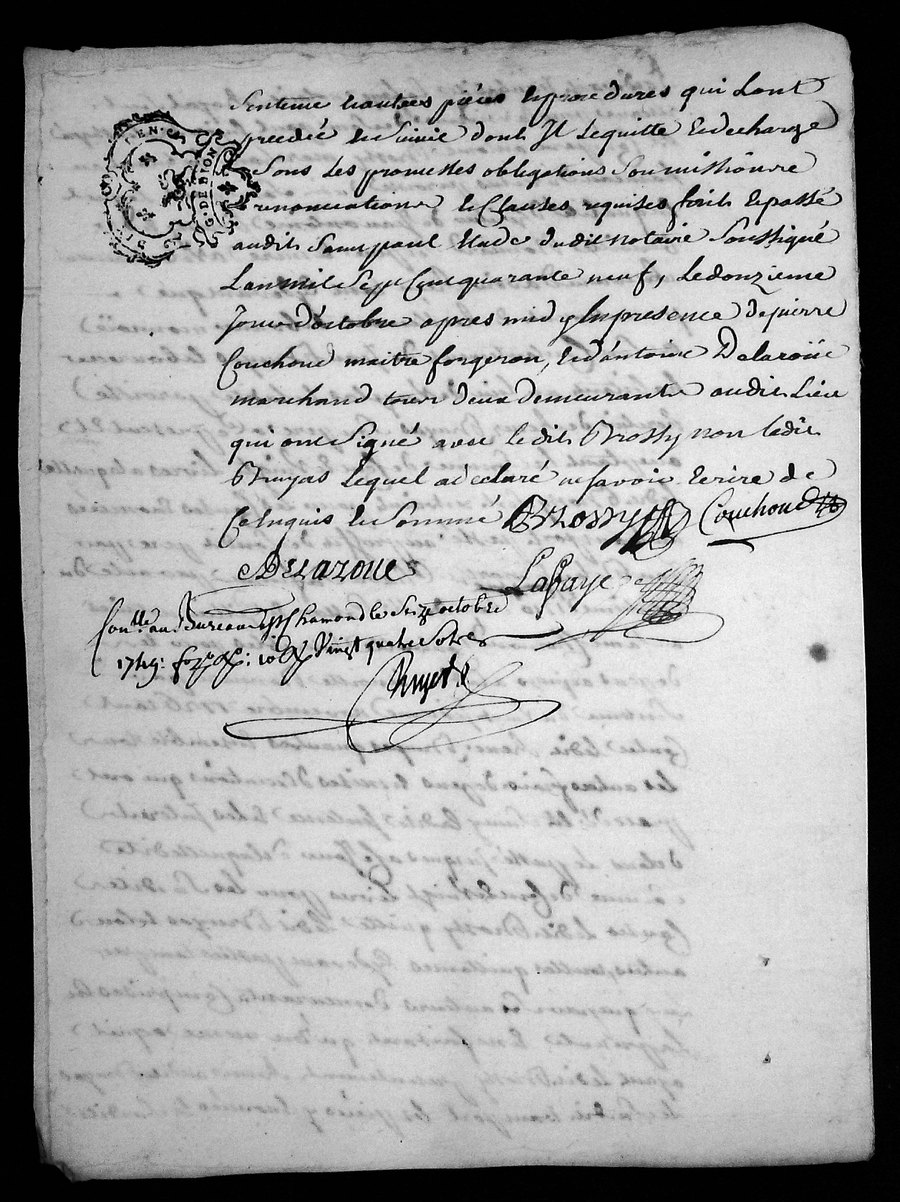 Sentence & autres pièces & procedures qui L'ont
precedée & Suivie dont Il Le quitte & decharge
Sous Les promesses obligations Soumissions
renonciations & Clauses requises fait & passé
audit Saint paul Etude dudit notaire Soussigné
L'an mil Sept Cent quarante neuf, Le douzieme
Jour d'octobre apres midy En presence de pierre
Couchoud maitre forgeron, & d'antoine Delaroüe
marchand tous deux demeurants audit Lieu
qui ont Signé avec Ledit Brossy non Ledit
Bruyas Lequel a déclaré ne savoir Ecrire de
Ce Enquis & Sommé Brossy Couchoud
Delaroue Lafaye
Conlle au Bureau de St Chamond le Seize octobre
1749: Vingt quatre Sols